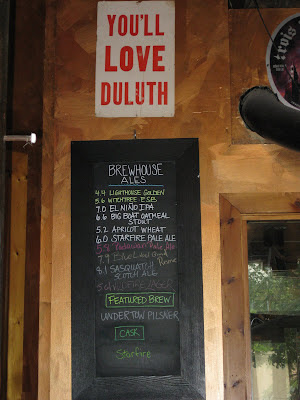 YOU'LL
LOVE
DULUTH
trois
BREWHOUSE
ALES
4.4 LIGHTHOUSE GOLDEN
5.6 WITCHTREE E.S.B.
7.0 EL NIÑO IPA
6.6 BIG BOAT OATMEAL
STOUT
5.2 APRICOT WHEAT
6.0 STARFIRE PALE ALE
Pale Ale
7.9
8.1 SASQUATCH
SCOTCH ALE
FEATURED BREW
UNDERTOW PILSNER
CASK
Starfire